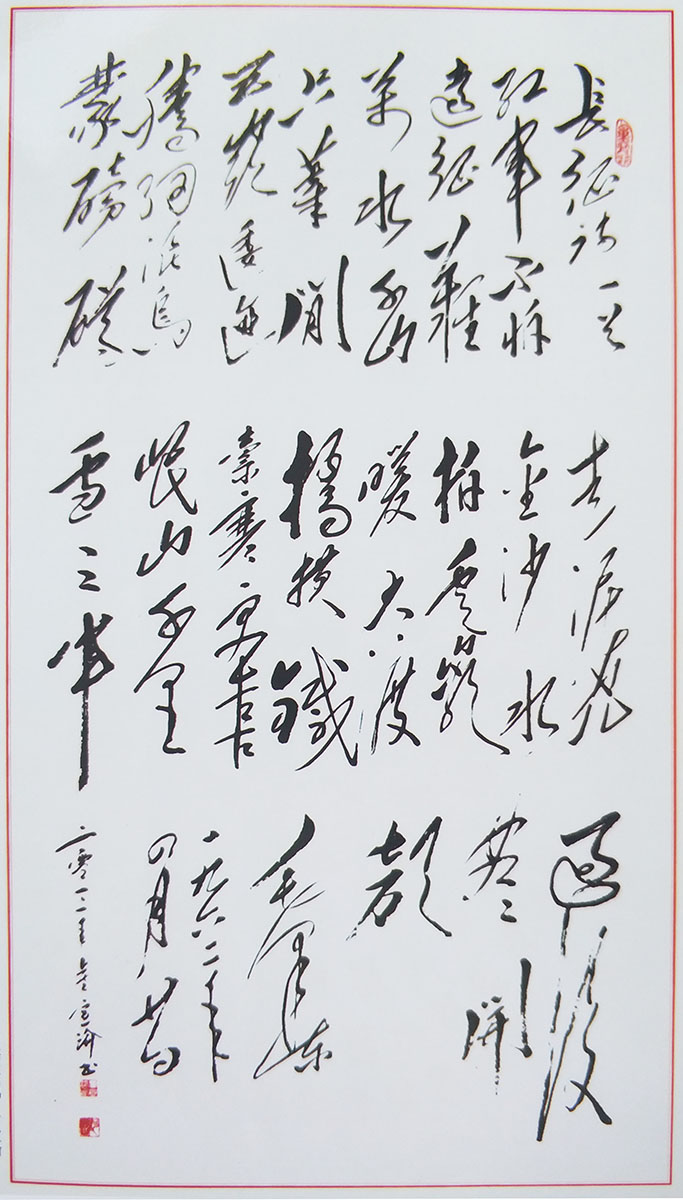 長征詩一首
紅軍不怕
遠征難
萬水千山
只等閒
五嶺逶迤
騰細浪烏
蒙磅礴
走泥丸
金沙水
拍雲崖
暖大渡
橋橫鐵
索寒更喜
岷山千里
雪三軍
過後
盡開
顏
毛澤東
一九六二年
四月廿日
二零一二年 書